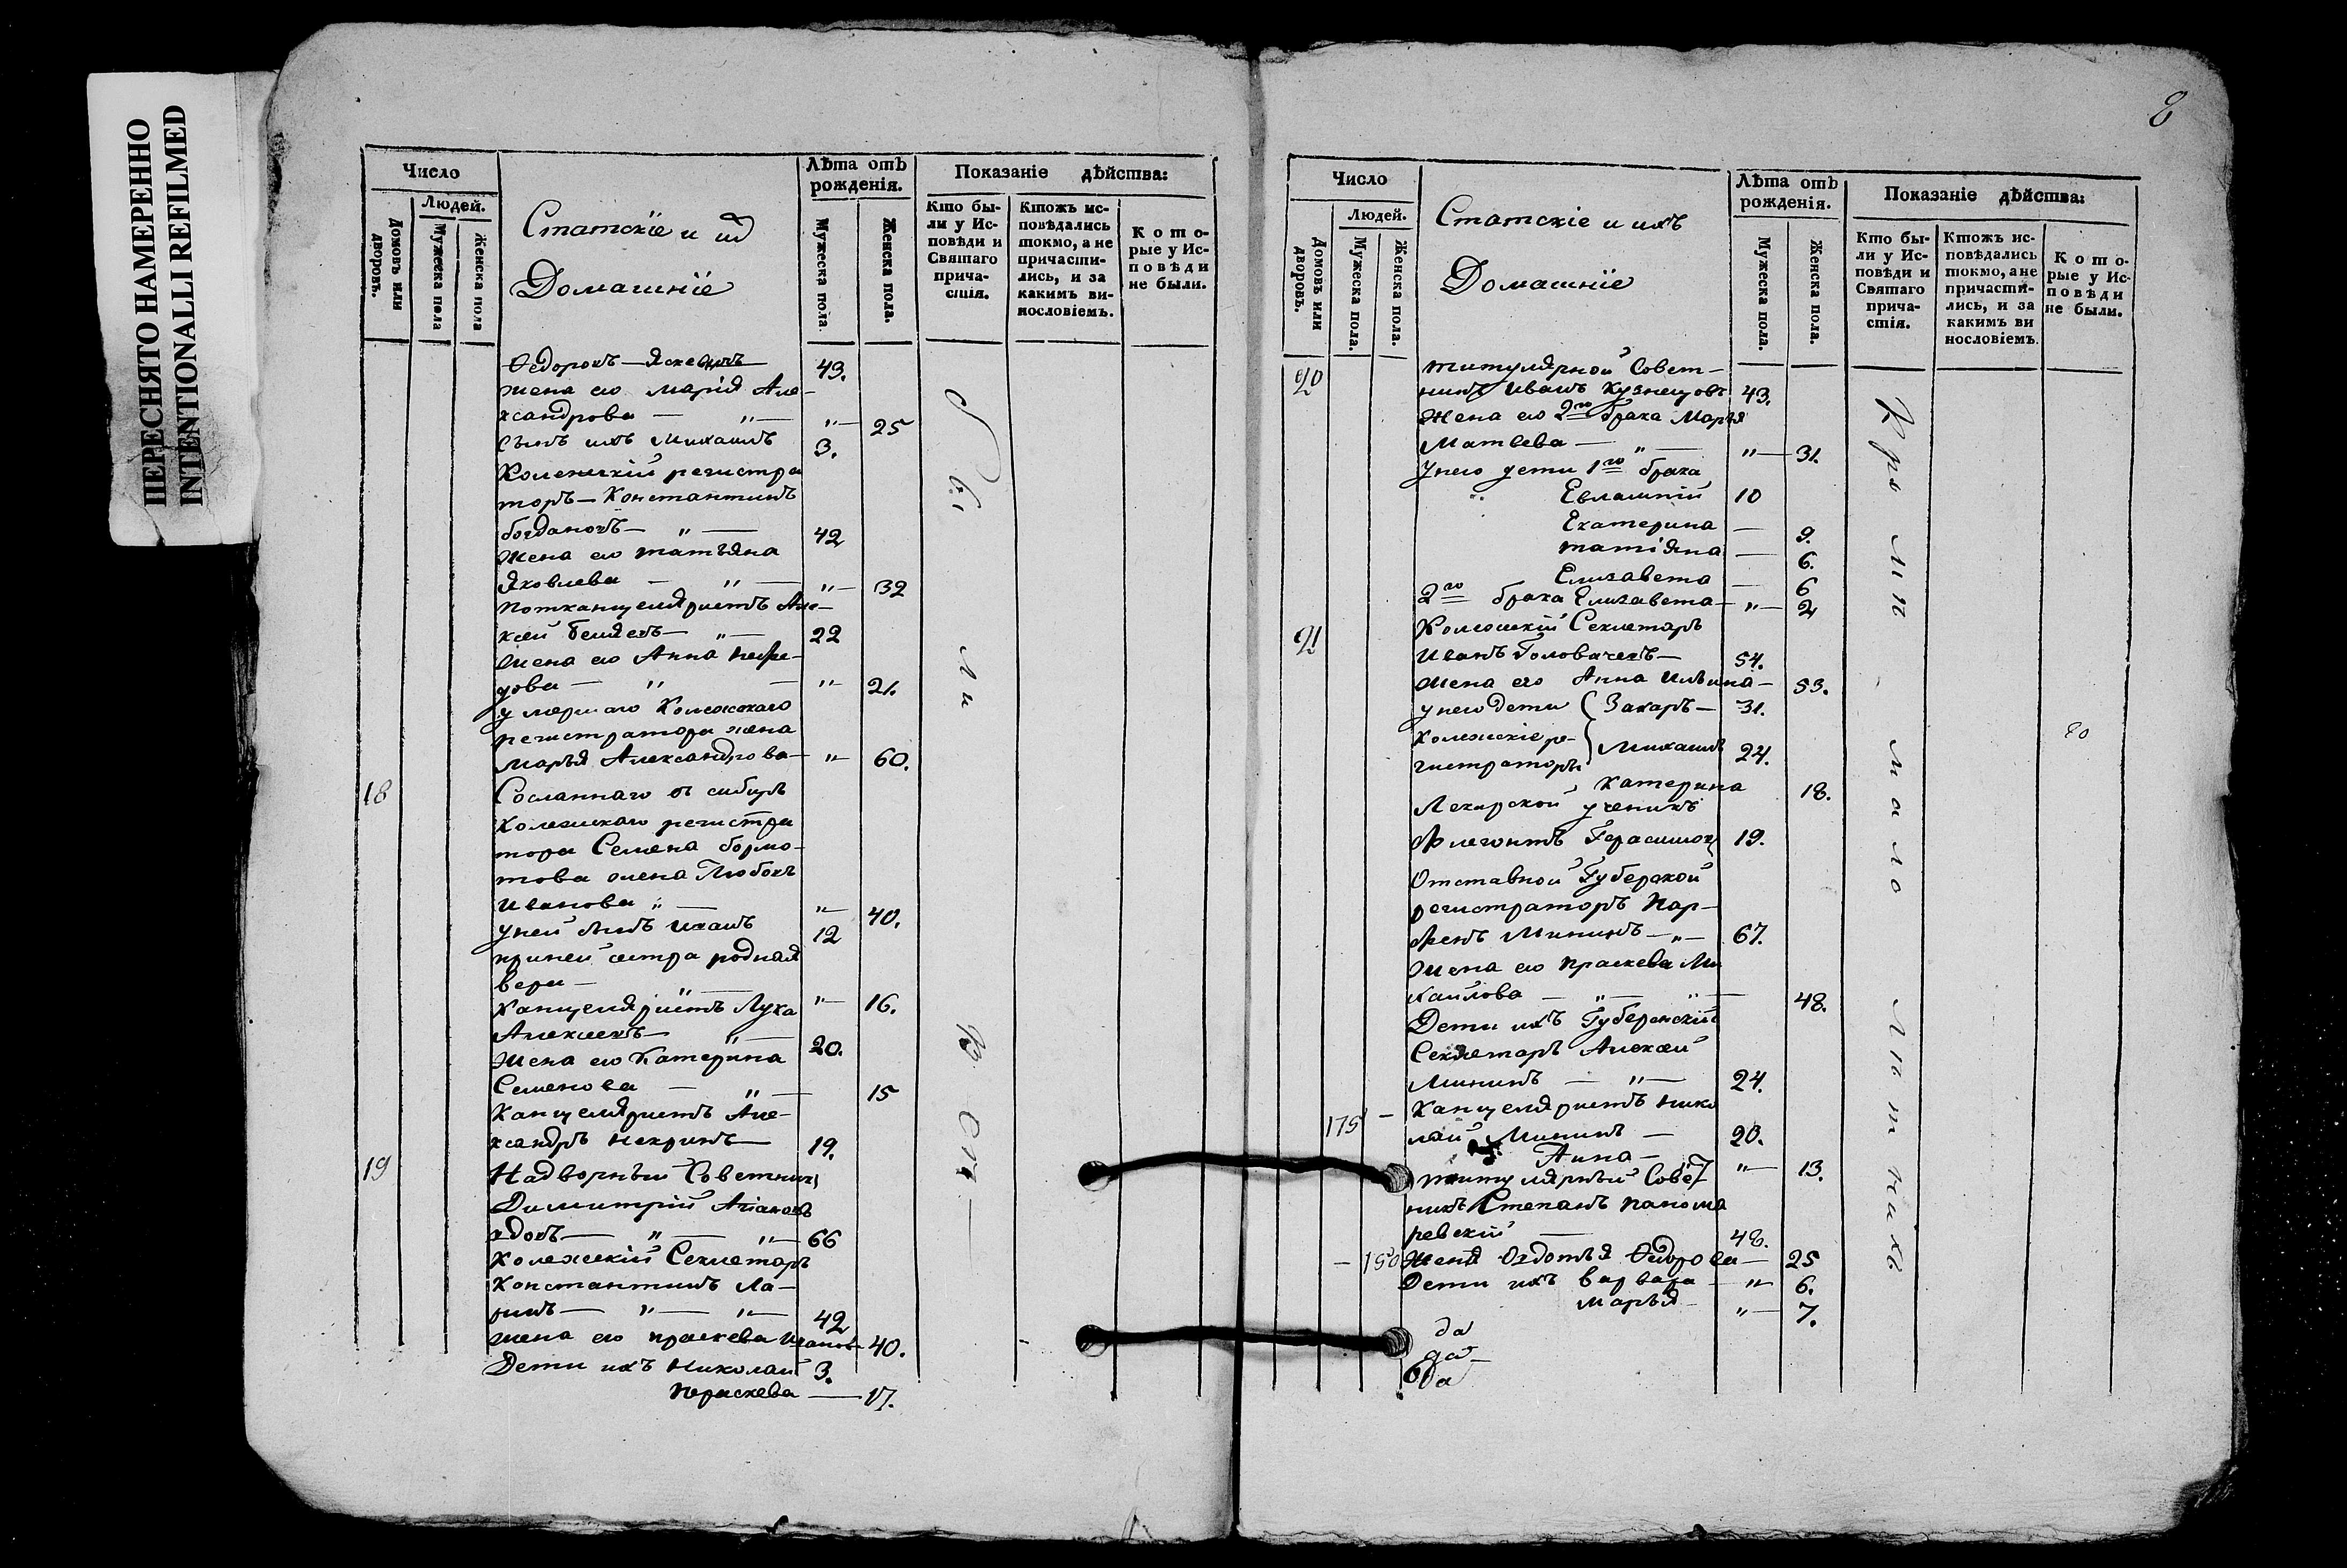 ПЕРЕСНЯТО НАМЕРЕННО
INTENTIONALLI REFILMED
Число
Людей.
Домовъ или дворовъ.
Мужеска пола
Женска пола
Статскіе и
Домашніе
Лѣта отъ
рожденія.
Мужеска пола.
Женска пола.
Показаніе дѣйства:
Кто бы-
ли у Ис-
повѣди и
Святаго
прича-
стія.
Ктожъ ис-
повѣдались
токмо, а не
причасти-
лись, и за
какимъ ви-
нословіемъ.
Кото-
рые у Ис-
повѣди
не были.
Ѳедоровъ 43.
жена ево Марія Але-
ксандрова — „ — „ — 25
сынъ ихъ Михаилъ 3.
Колежскій регистра
торъ — Константинъ
Богдановъ — „ — 42
Жена ево Татьяна
Яковлева — „ — „ — 32
Потканцеляристъ Але-
ксей Беляевъ — „ — 22
Жена ево Анна
— „ — „ — 21.
умершаго Колежскаго
регистратора жена
Марья Александрова — „ — 60.
18 Сосланнаго въ сибирь
Колежскаго регистра
тора Семена Бормо-
това жена Любовь
Иванова „ — „ — 40.
у ней сынъ Иванъ 12
при ней сестра родная
вера — „ — „ — 16.
Канцеляристъ Лука
Алексеевъ — „ — 20.
Жена ево Катерина
Семенова — „ — 15
Канцеляристъ Але-
ксандръ — 19.
19 Надворный Советникъ
Димитрій
— „ — „ — 66
Колежскій Секлетарь
Константинъ Ла-
ринъ — „ — „ — 42
жена ево Праскева Иванов- 40.
Дети ихъ Николай 3.
Праскева — 17.
8
Число
Людей.
Домовъ или дворовъ.
Мужеска пола.
Женска пола.
Статскіе и ихъ
Домашніе
Лѣта отъ
рожденія.
Мужеска пола.
Женска пола.
Показаніе дѣйства:
Кто бы-
ли у Ис-
повѣди и
Святаго
прича-
стія.
Ктожъ ис-
повѣдались
токмо, а не
причасти-
лись, и за
какимъ ви
нословіемъ.
Кото-
рые у Ис-
повѣди
не были.
20 титулярной Совет-
никъ Иванъ Кузнецовъ 43.
Жена ево 2го брака Марья
Матвева — „ — „ — 31.
У нево дети 1го брака
Евлампій 10
Екатерина — 9.
татіяна — 6.
Елизавета — 6
2го брака Елизавета — „ — 2
21 Колежскій Секлетарь
Иванъ Головачевъ — 54.
Жена ево Анна Ильина — 53.
у нево дети Захаръ — 31.
Колежскіе ре-
гистраторы Михаилъ 24.
Катерина 18.
Лекарской ученикъ
Флегонтъ Герасимов 19.
Отставной Губерской
регистраторъ Пар-
фенъ Мининъ — „ — 67.
Жена ево Праскева Ми
хайлова — „ — „ — 48.
Дети ихъ Губеренскій
Секлетарь Алексей
Мининъ — „ — 24.
Канцеляристъ Нико
175 — лай Мининъ — 20.
Анна — „ — 13.
титулярный Совет
никъ Степанъ
— 48.
— 150 Жена Овдотья Ѳедорова — 25
Дети ихъ варвара — „ — 6.
Марья — „ — 7.
да
да